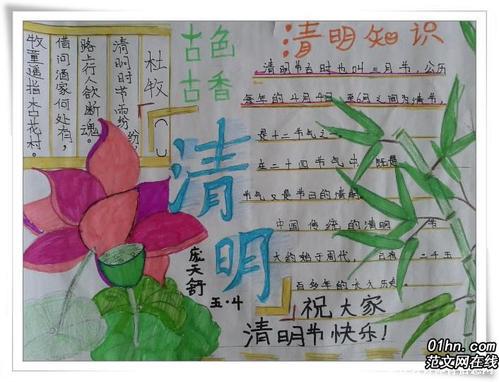 杜牧
清明时节雨纷纷
路上行人欲断魂。
借问酒家何处有，
牧童遥指杏花村。
古色
古香
清明
庞天舒
五·4
清明知识
清明节古时也叫三月节，公历
每年的4月4日至6日之间为清节，
是十二节气之
在二十四节气中 既是
节气又是节日的清明
中国传统的清明 节
大约始于周代， 二千五
百多年的 历史
祝大家
清明节快乐！
01hn.com
范文网在线